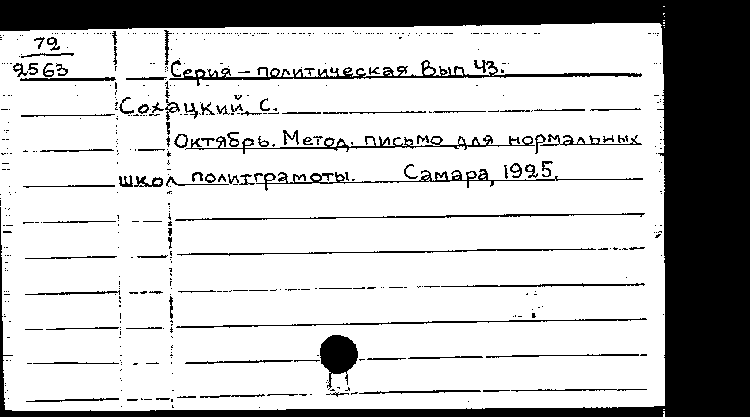 72
2563
Серия – политическая. Вып. 43:
Сохацкий, С.
Октябрь. Метод. письмо для нормальных
школ политграмоты. Самара, 1925.